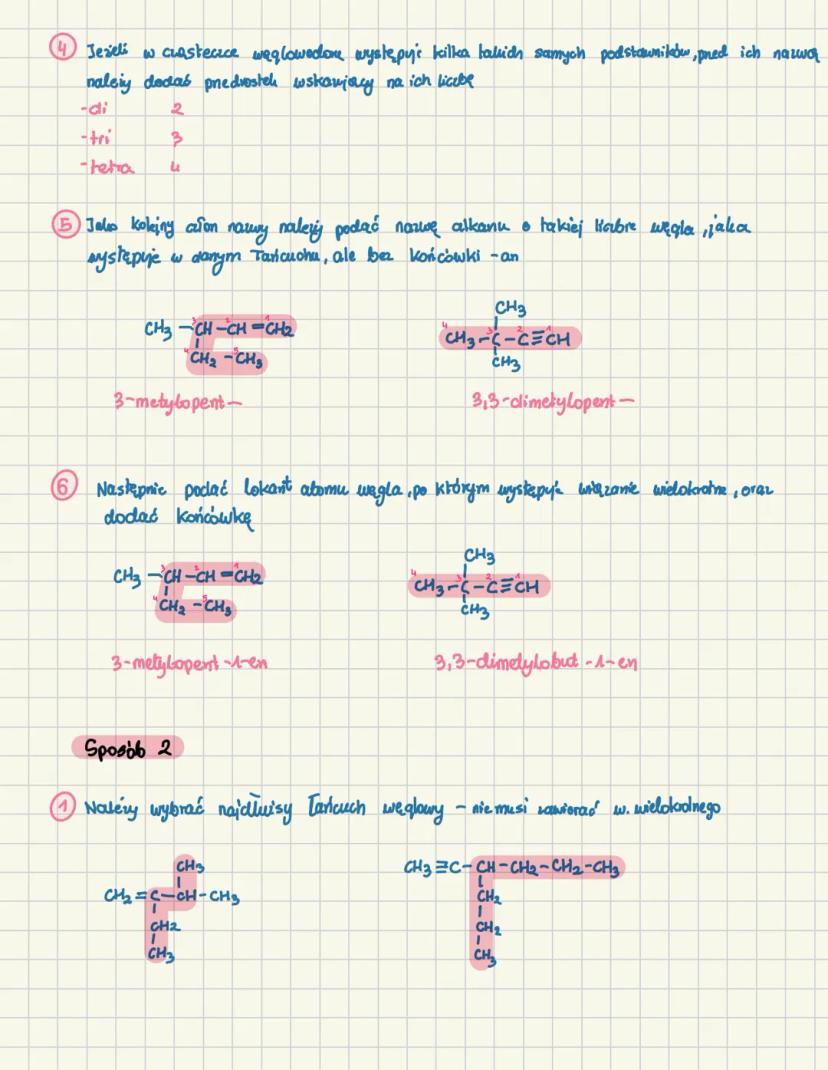 4 Jeżeli w cząsteczce węglowodoru występuje kilka takich samych podstawników, przed ich nazwą
należy dodać przedrostek wskazujący na ich liczbę
-di 2
-tri 3
-tetra 4
5 Jako kolejny człon nazwy należy podać nazwę alkanu o takiej liczbie węgla, jaka
występuje w danym łańcuchu, ale bez końcówki -an
CH3
CH3 - CH - CH = CH2
CH3 - C - C ≡ CH
CH2 - CH3
CH3
3-metylopent-
3,3-dimetylopent-
6 Następnie podać lokant atomu węgla, po którym występuje wiązanie wielokrotne, oraz
dodać końcówkę
CH3
CH3 - CH - CH = CH2
CH3 - C - C ≡ CH
CH2 - CH3
CH3
3-metylopent-1-en
3,3-dimetylobut-1-en
Sposób 2
1 Należy wybrać najdłuższy łańcuch węglowy - nie musi zawierać w. wielokrotnego
CH3
CH2 = C - CH - CH3
CH2
CH3
CH3 ≡ C - CH - CH2 - CH2 - CH3
CH2
CH2
CH3